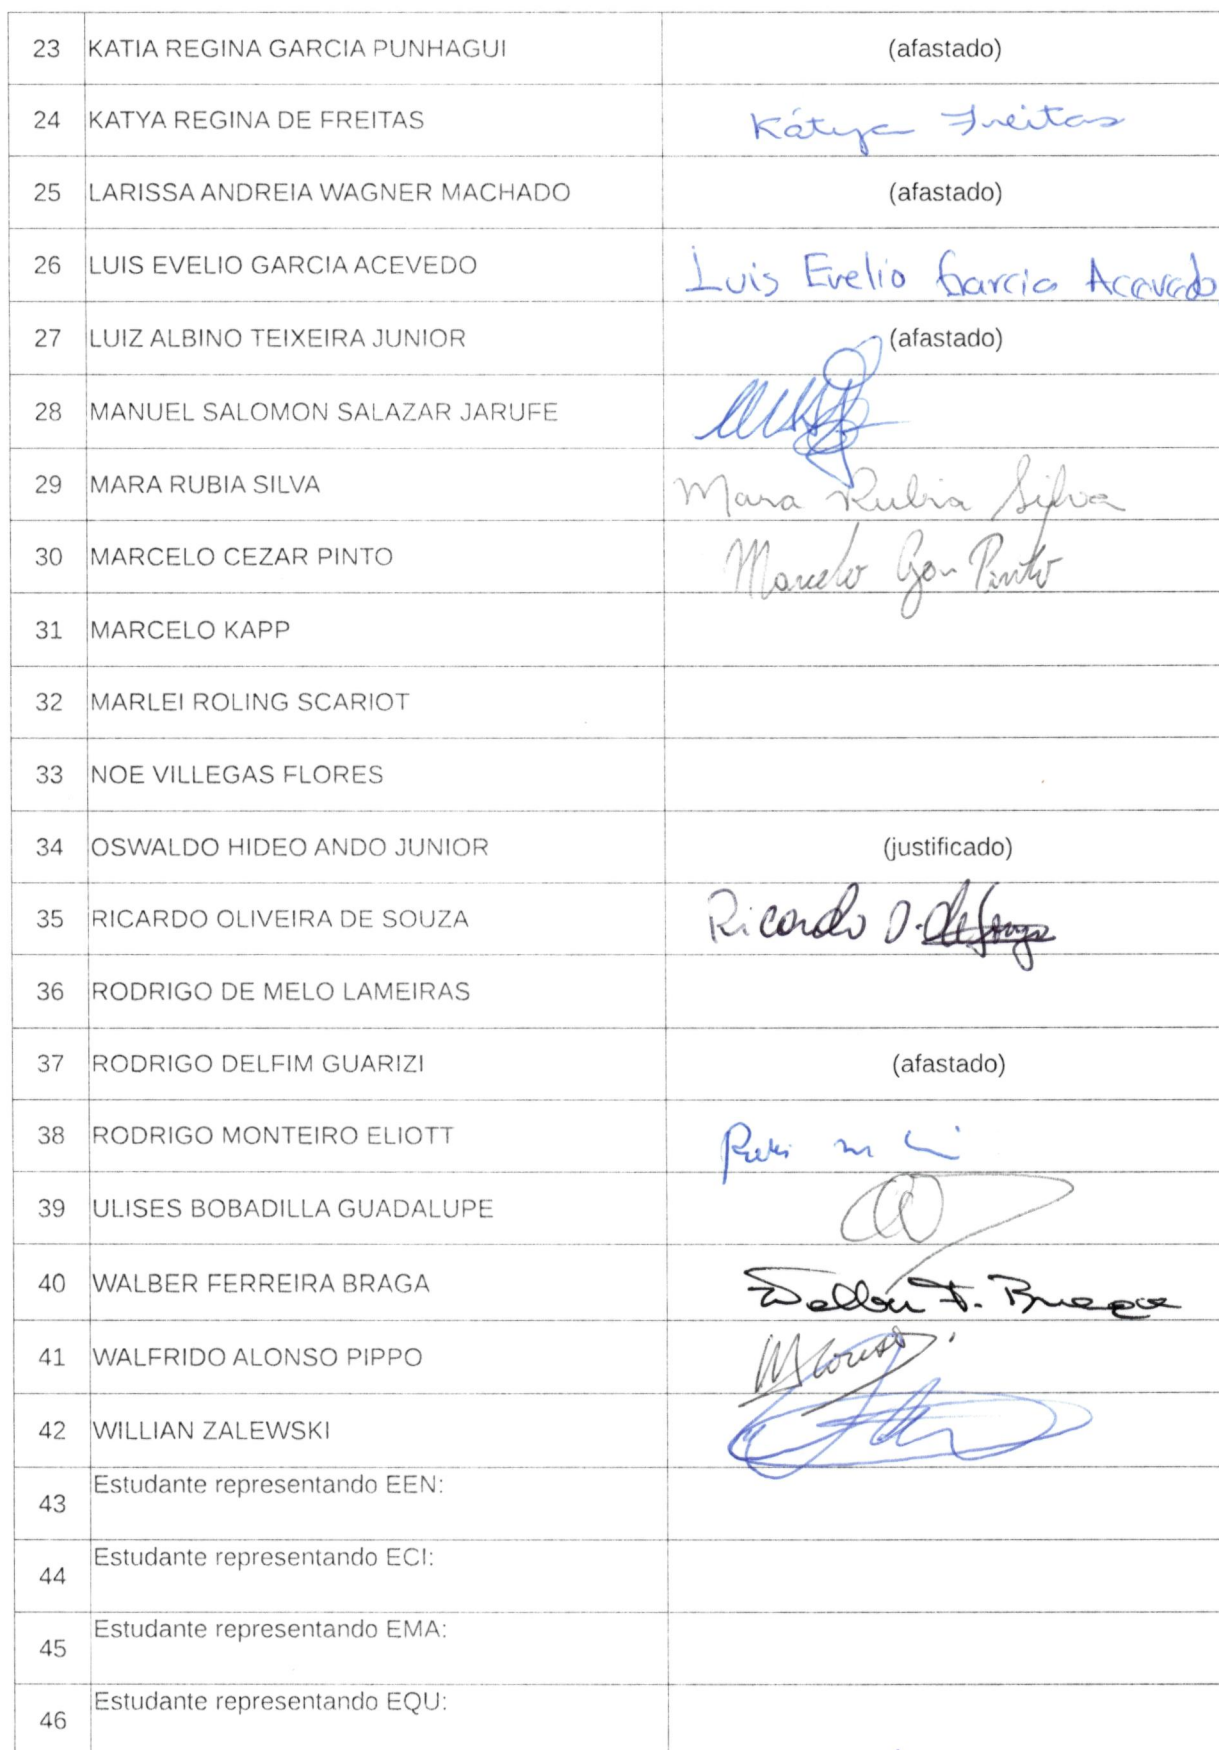 23 KATIA REGINA GARCIA PUNHAGUI (afastado)
24 KATYA REGINA DE FREITAS Kátya Freitas
25 LARISSA ANDREIA WAGNER MACHADO (afastado)
26 LUIS EVELIO GARCIA ACEVEDO Luis Evelio Garcia Acevedo
27 LUIZ ALBINO TEIXEIRA JUNIOR (afastado)
28 MANUEL SALOMON SALAZAR JARUFE
29 MARA RUBIA SILVA Mara Rubia Silva
30 MARCELO CEZAR PINTO Marcelo Pinto
31 MARCELO KAPP
32 MARLEI ROLING SCARIOT
33 NOE VILLEGAS FLORES
34 OSWALDO HIDEO ANDO JUNIOR (justificado)
35 RICARDO OLIVEIRA DE SOUZA Ricardo O. de Souza
36 RODRIGO DE MELO LAMEIRAS
37 RODRIGO DELFIM GUARIZI (afastado)
38 RODRIGO MONTEIRO ELIOTT
39 ULISES BOBADILLA GUADALUPE
40 WALBER FERREIRA BRAGA Walber F. Braga
41 WALFRIDO ALONSO PIPPO WAlonso
42 WILLIAN ZALEWSKI
43 Estudante representando EEN:
44 Estudante representando ECI:
45 Estudante representando EMA:
46 Estudante representando EQU: